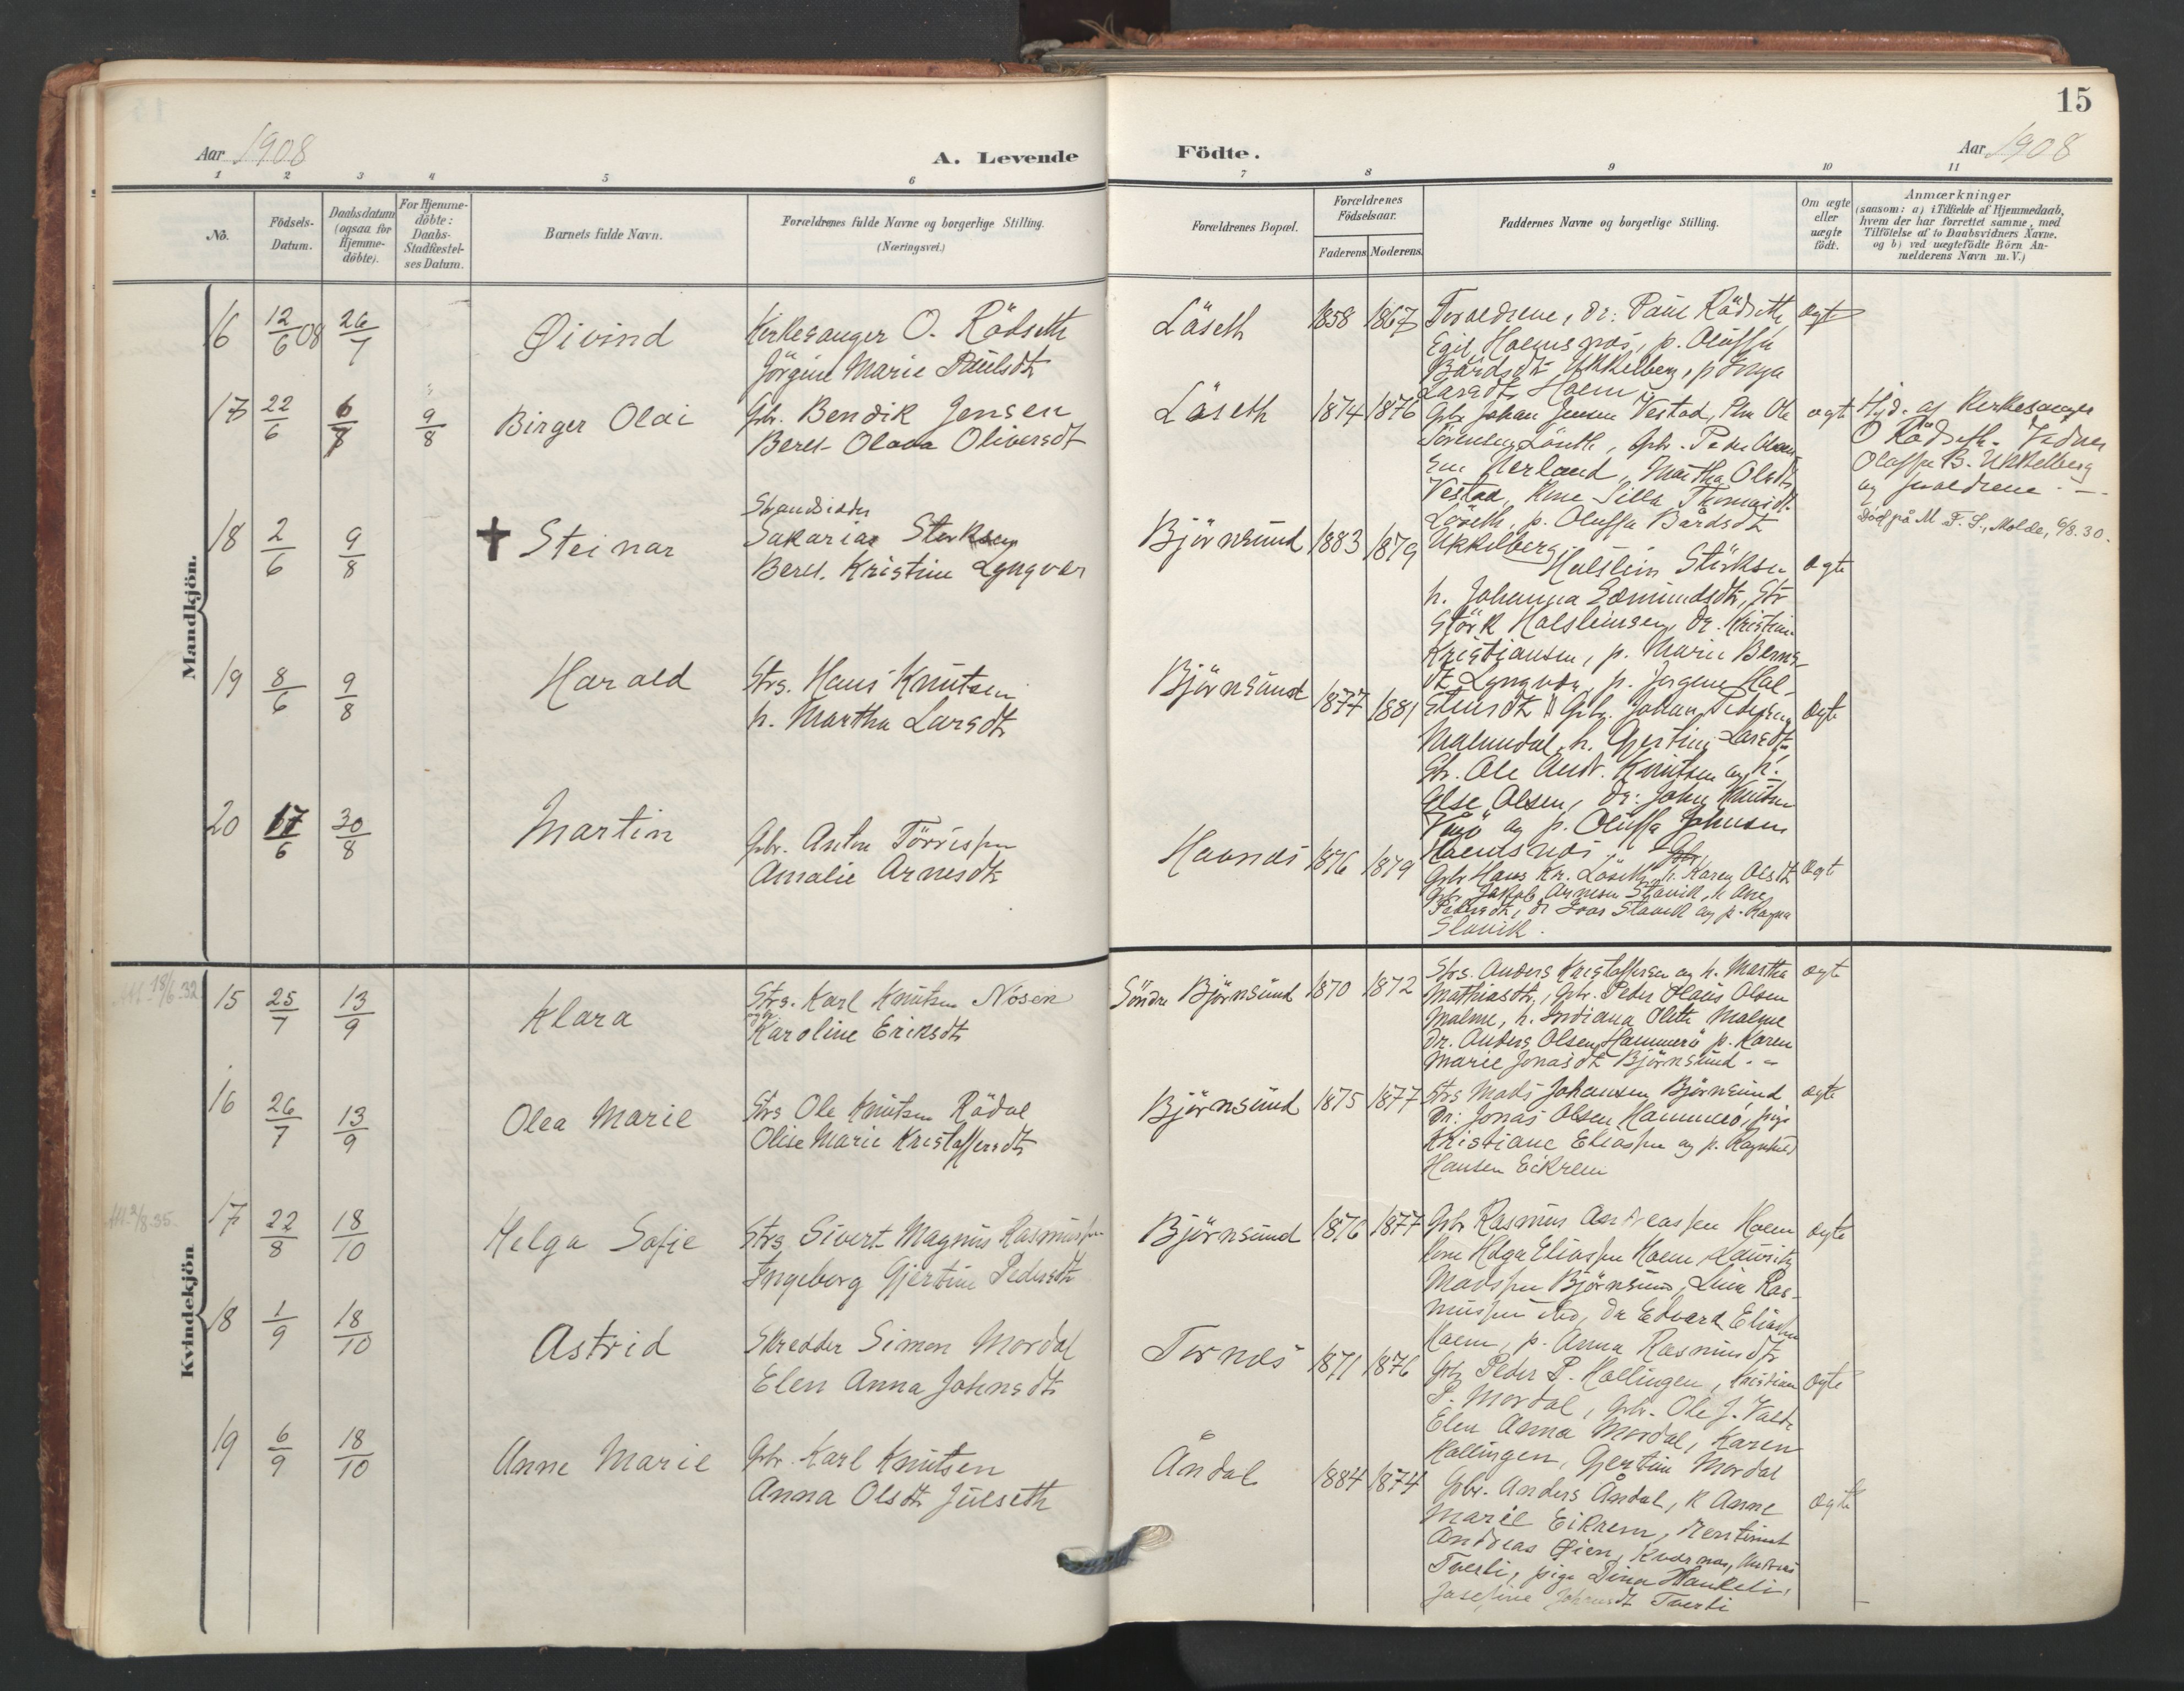 15
Aar 1908
A. Levende Födte.
Aar 1908
1 2 3 4 5 6 7 8 9 10 11
Nö.
Födsels-Datum.
Daabsdatum (ogsaa for Hjemme-döbte).
For Hjemme-döbte: Daabs-Stadfæstel-ses Datum.
Barnets fulde Navn.
Forældrenes fulde Navne og borgerlige Stilling.
(Næringsvei.)
Forældrenes Bopæl.
Forældrenes Födselsaar.
Faderens Moderens
Faddernes Navne og borgerlige Stilling.
Om ægte eller uægte födt.
Anmærkninger
(saasom: a) i Tilfælde af Hjemmedaab,
hvem der har forrettet samme, med
Tilföielse af to Daabsvidners Navne.
og b) ved uægtefödte Börn An-
melderens Navn m. V.)
Mandkjön.
16 12/6 08 26/7 Øivind
Kirkesanger O. Rödseth
Jörgine Marie Paulsdtr
Läseth 1858 1867
Forældrene, Dr: Paul Rödseth
Egil Haemsnæs, p. Oluffa
Bårdsdtr Ukkelberg, p Inga
Larsdtr Haem
ægte
17 22/6 6/8 9/8 Birger Olai
Gbr. Bendik Jensen
Beret Olava Oliversdt
Läseth 1874 1876
Gbr Johan Jensen Vestad, Ole
Sörensen Läseth, Gbr. Peder
Herland, Martha Olsdtr
Vestad, Kone Silla Thomasdt.
Löseth, p. Oluffa Bårdsdt
Ukkelberg
ægte
Hjd. af Kirkesanger
O Rödseth. Vidner
Oluffa B. Ukkelberg
og forældrene. —
Död på M. F. S., Molde, 6/8.30.
18 2/6 9/8 ✝ Steinar
Strandsidder
Sakarias Sterksen
Beret Kristine Lyngvær
Björnsund 1883 1879
Halstein Störksen
h. Johanna Edmundsdtr, Str
Störk Halsteinsen, Dr. Kristian
Kristiansen, p. Marie Bernts-
dtr Lyngvær, p. Jörgine Hal-
steinsdtr
ægte
19 8/6 9/8 Harald
Strs. Hans Knutsen
h. Martha Larsdtr
Björnsund 1877 1881
Gbr. Johan Pedersen
Malmedal, h. Gjertine Larsdtr
Str. Ole Andr. Knutsen og h.
Else Olsen, Dr: John Knutsen
og p. Oluffa Johnsen
Haemsnæs
ægte
20 17/6 30/8 Martin
Gbr. Anton Törrissen
Amalie Arnesdtr
Havnæs 1876 1879
Gbr Hans Kr. Läseth, h. Karen Olsdtr
Gbr Jakob Arnesen Stavik, h Ane
Pedersdtr, dr Ivar Stavik og p. Ragna
Stavik.
ægte
Kvindekjön
18/6.32
15 25/7 13/9 Klara
Strs. Karl Knutsen Nösen
og h.
Karoline Eriksdtr
Söndre Björnsund 1870 1872
Strs. Anders Kristoffersen og h. Martha
Mathiasdtr, Gbr. Peder Olaus Olsen
Malme, h. Indiana Malme
Dr. Anders Olsen Hammerö p. Karen
Marie Jonasdtr Björnsund. —
ægte
16 26/7 13/9 Olea Marie
Strs Ole Knutsen Rödal
Olise Marie Kristoffersdtr
Björnsund 1875 1877
Strs Mads Johansen Björnsund
Dr: Jonas Olsen Hammerö, pige
Kristiane Eliassen og p. Ragnhild
Hansen Eikrem
ægte
2/8.35.
17 22/8 18/10 Helga Sofie
Strs Sivert Magnus Rasmussen
Ingeborg Gjertine Pedersdtr
Björnsund 1876 1877
Gbr Rasmus Andreassen Haem
kone Helga Eliassen Haem, Lauritz
Madssen Björnsund, Lina Ras-
mussen ibid, Dr Edvard Eliassen
Haem, p. Anna Rasmusdtr
ægte
18 1/9 18/10 Astrid
Skredder Simon Mordal
Elen Anna Johnsdtr
Tornes 1871 1876
Gbr Peder P. Hollingen, Kristian
P. Mordal, Gbr. Ole J.
Elen Anna Mordal, Karen
Hollingen, Gjertine Mordal
ægte
19 6/9 18/10 Anne Marie
Gbr. Karl Knutsen
Anna Olsdtr Julseth
Åndal 1884 1874
Gbr. Anders Åndal, k Anne
Marie Eikrem,
Andreas Øien,
Tverli, pige Dina Haukeli,
Josefine Johansdt Tverli
ægte